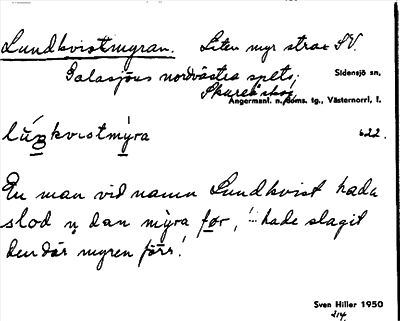 Lundkvistmyran. Liten myr strax SV
Galasjöns nordvästra spets,
Skureå skog.
Sidensjö sn,
Ångermanl. n. doms. tg., Västernorrl. l.
kvistmýra 622.
En man vid namn Lundkvist hade
slod n dan mỳra før, hade slagit
den där myren förr!
Sven Hiller 1950
214.